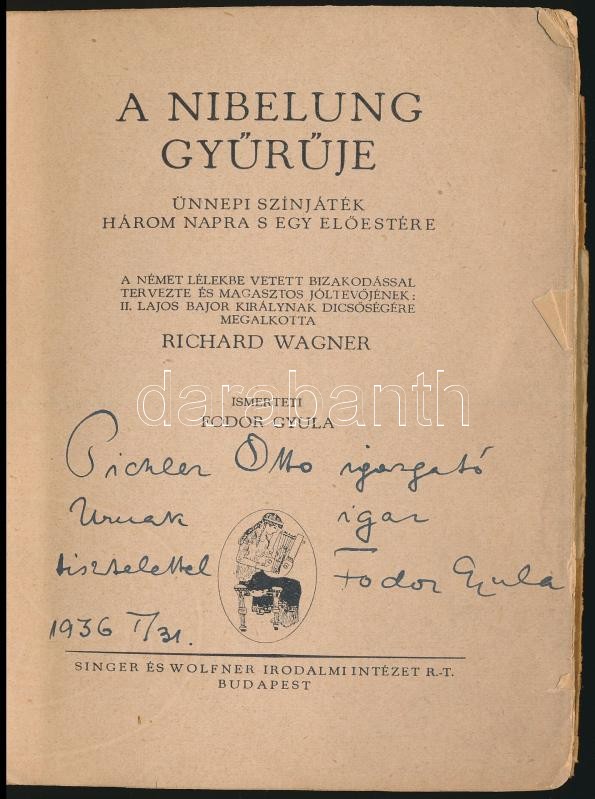 A NIBELUNG
GYŰRŰJE
ÜNNEPI SZÍNJÁTÉK
HÁROM NAPRA S EGY ELŐESTÉRE
A NÉMET LÉLEKBE VETETT BIZAKODÁSSAL
TERVEZTE ÉS MAGASZTOS JÓLTEVŐJÉNEK:
II. LAJOS BAJOR KIRÁLYNAK DICSŐSÉGÉRE
MEGALKOTTA
RICHARD WAGNER
ISMERTETI
darabanth
FODOR GYULA
Pichler Ottó igazgató
Urnak igaz
tisztelettel Fodor Gyula
1936 I/31.
SINGER ÉS WOLFNER IRODALMI INTÉZET R.-T.
BUDAPEST